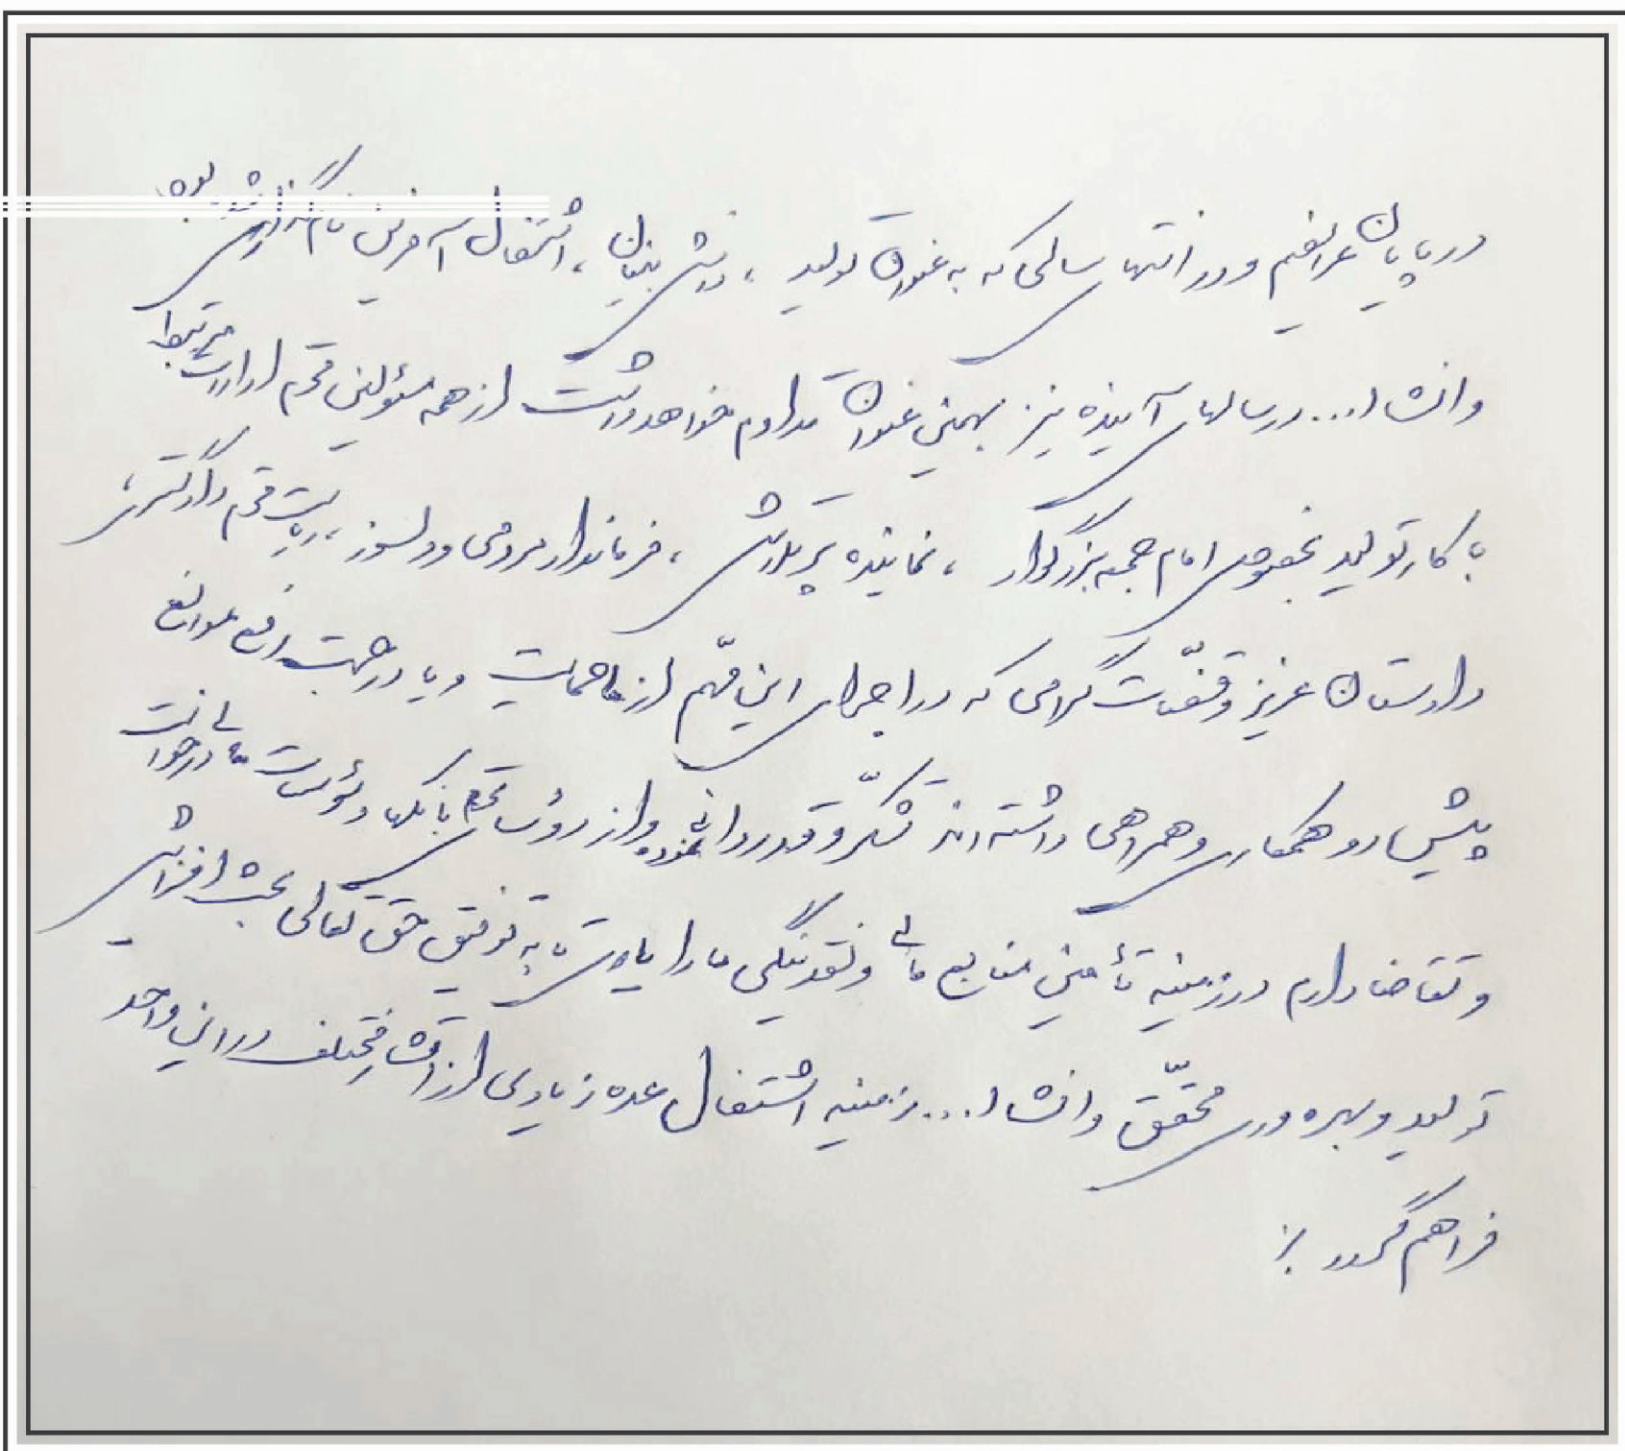 در پایان عرایضم و در انتهای سالی که به عنوان تولید ، دانش بنیان ، اشتغال آفرین نام گذاری شده بود
وانشا ا... در سالهای آینده نیز بهمین عنوان تداوم خواهد داشت از همه مسئولین محترم ادارات مرتبط
با کار تولید بخصوص امام جمعه بزرگوار ، نماینده پرتلاش ، فرماندار مردمی و دلسوز ، ریاست محترم دادگستری ،
دادستان عزیز و قضّات گرامی که در اجرای این مهّم از ما حمایت و یا در جهت رفع موانع
پیش رو همکاری و همراهی داشته اند تشکّر و قدردانی نموده و از رؤسای محترم بانکها و مؤسسات مالی درخواست
و تقاضا دارم در زمینه تأمین منابع مالی و نقدینگی ما را یاری تا به توفیق حق تعالی بحث افزایش
تولید و بهره وری محقّق وانشا ا... زمینه اشتغال عده زیادی از اقشار مختلف در این واحد
فراهم گردد .